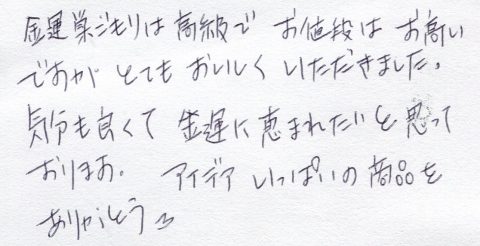 金運巣ごもりは高級で お値段は お高い
ですが とても おいしく いただきました。
気分も良くて 金運に恵まれたいと思って
おります。 アイデア いっぱいの商品を
ありがとう